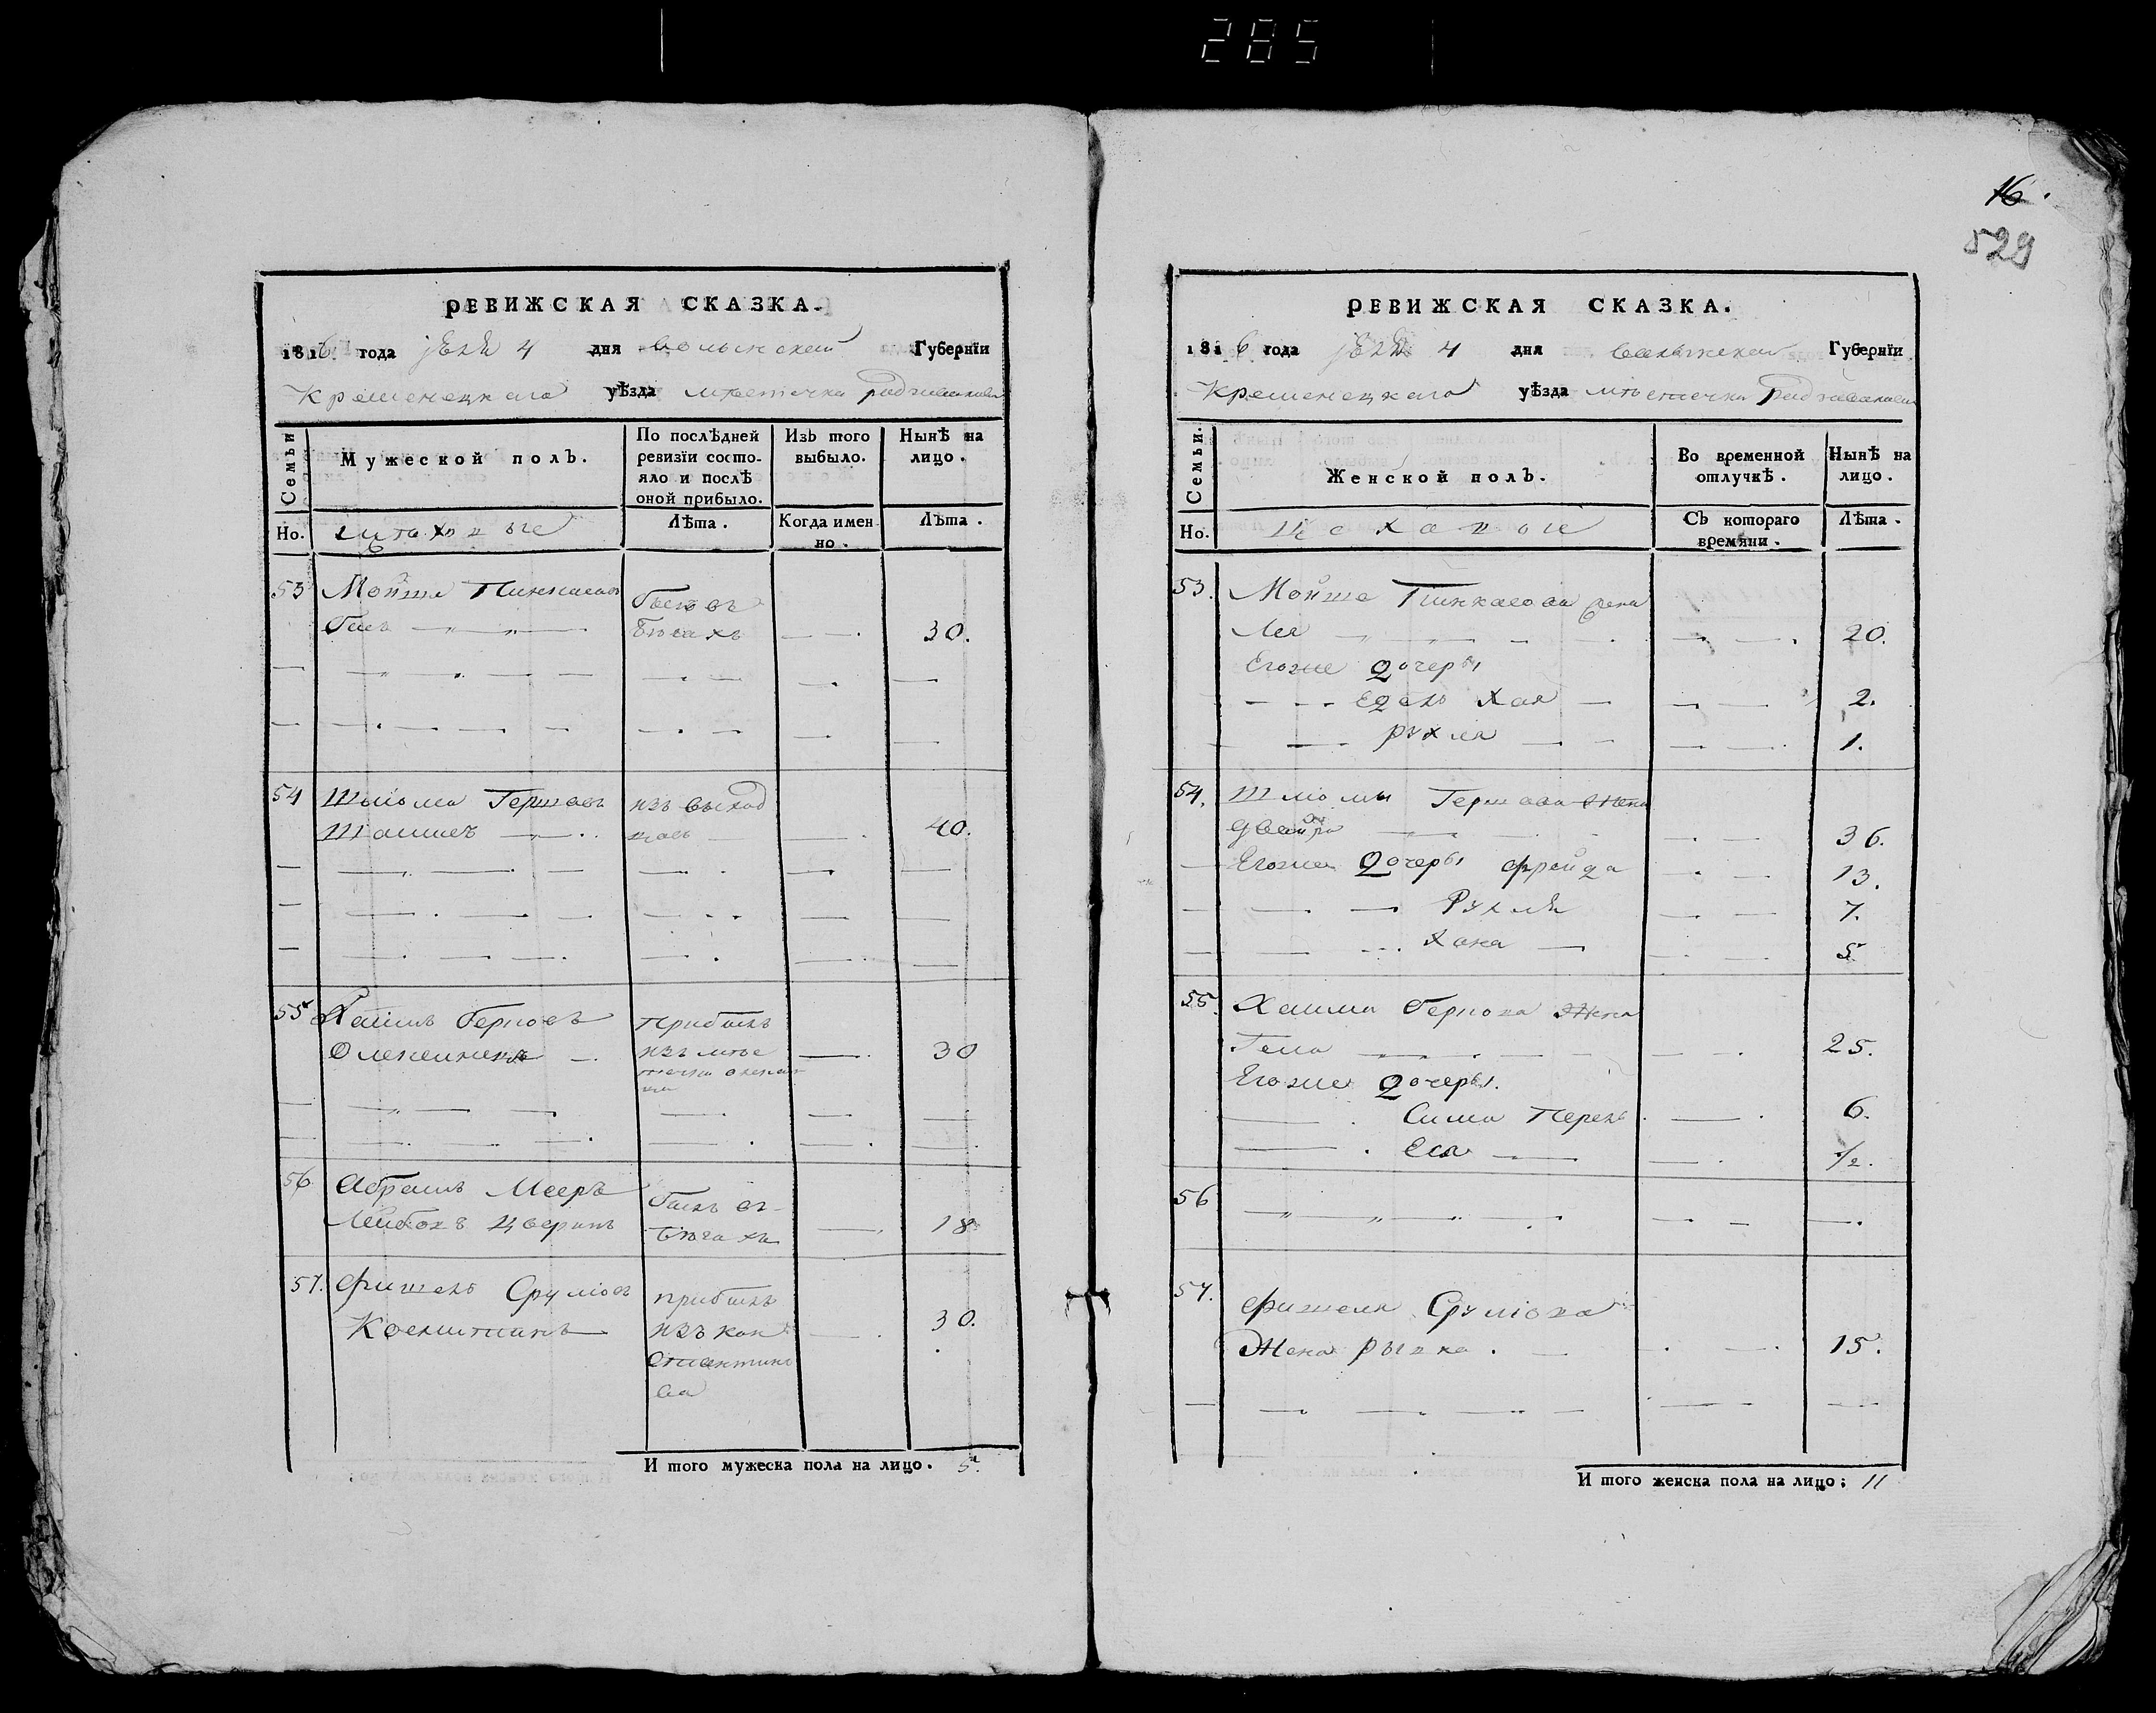 285
16.
529
РЕВИЖСКАЯ СКАЗКА.
1816 года 4 дня волынской Губернїи
Кременецкаго уѣзда мѣстечка радзивилова
Семьи
Мужеской полъ.
По послѣдней ревизїи состо-
яло и послѣ
оной прибыло.
Изъ того
выбыло.
Нынѣ на
лицо.
Но.
Лѣта.
Когда имен
но.
Лѣта.
53 Мойше Пинкасовъ былъ въ
бѣгахъ 30.
54 Шліома Гершовъ изъ выход
цовъ 40.
55 Хаимъ Берковъ прибылъ
Олексинецъ изъ мѣс 30
течка олекси
56 Абрамъ Мееръ былъ въ
Лейбовъ Цверинъ бѣгахъ 18
57. Фишель Сруліовъ прибылъ
изъ кон 30.
стантино
ва
И того мужеска пола на лицо. 5.
РЕВИЖСКАЯ СКАЗКА.
1816 года 4 дня волынской Губернїи
Кременецкаго уѣзда мѣстечка Радзивилова
Семьи.
Женской полъ.
Во временной
отлучкѣ.
Нынѣ на
лицо.
Но.
Съ котораго
времяни.
Лѣта.
53. Мойше Пинкасова жена
Лея 20.
Егоже дочеры
Едель Хая 2.
рухля 1.
54. Шліомы Гершова жена
Двейра 36.
Егоже дочеры фрейда 13.
Рухля 7.
Хана 5
55. Хаима Беркова жена
25.
Егоже дочеры.
Сима Перель 6.
Еся 1/2.
56
57. Фишеля Сруліова
Жена рывка. 15.
И того женска пола на лицо; 11